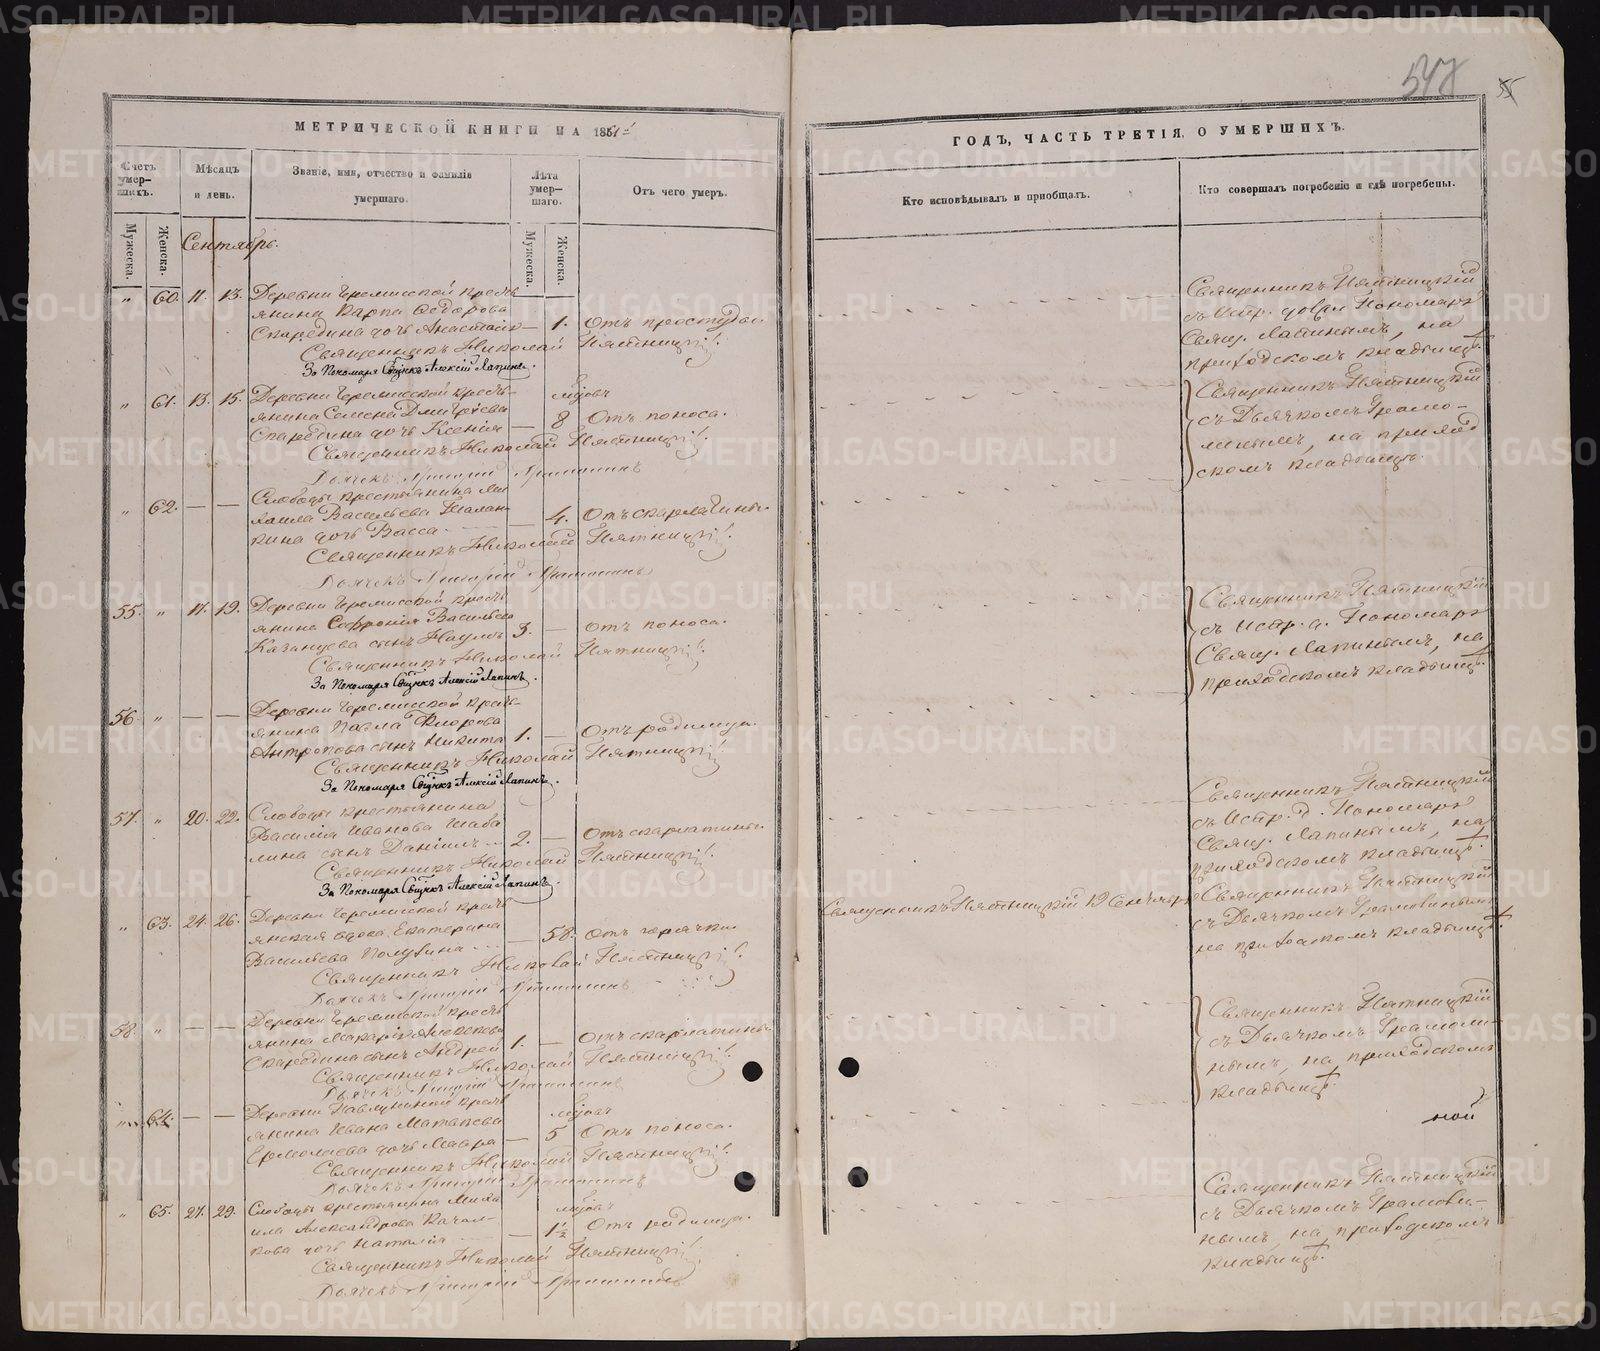 547
55
МЕТРИЧЕСКОЙ КНИГИ НА 1851
Счетъ умер-шихъ.
Мужеска.
Женска.
Мѣсяцъ и день.
Званіе, имя, отчество и фамилія умершаго.
Лѣта умер-шаго.
Мужеска.
Женска.
Отъ чего умеръ.
Сентябрь.
" 60. 11. 13. Деревни Черемисской кресть
янина Карпа Ѳедорова
Скаредина дочь Анастасія — 1. Отъ простуды.
Священникъ Николай Пятницкій.
За Пономаря Алексій Лапинъ.
" 61. 13. 15. Деревни Черемисской кресть-
янина Семена Дмитріева
Скаредина дочь Ксенія — 8 Отъ поноса.
Священникъ Николай Пятницкій.
Дьячекъ Григорій
" 62. — — Слободы крестьянина Ми
хаила Васильева Талан
кина дочь Васса — 4. Отъ скарлатины.
Священникъ Николай Пятницкій.
Дьячекъ Григорій
55. " 17. 19. Деревни Черемисской кресть
янина Софронія Васильева
Казанцева сынъ Наумъ 3. — Отъ поноса.
Священникъ Николай Пятницкій.
За Пономаря Алексій Лапинъ.
56. " — — Деревни Черемисской кресть-
янина Павла Флорова
Антропова сынъ Никита 1. — Отъ родимца.
Священникъ Николай Пятницкій
За Пономаря Алексій Лапинъ.
57. " 20. 22. Слободы крестьянина
Василія Иванова Шаба
лина сынъ Даніилъ 2. — Отъ скарлатины.
Священникъ Николай Пятницкій.
За Пономаря Алексій Лапинъ.
" 63. 24. 26. Деревни Черемисской кресть
янская вдова Екатерина
Васильева Полузина — 58. Отъ горячки.
Священникъ Николай Пятницкій.
Дьячекъ Григорій
58. " — — Деревни Черемисской кресть
янина Макарія Алексѣева
Скаредина сынъ Андрей 1. — Отъ скарлатины
Священникъ Николай Пятницкій.
Дьячекъ Григорій
64. — — Деревни кресть
янина Ивана Матвѣева
Ермолаева дочь Мавра — 5 Отъ поноса.
Священникъ Николай Пятницкій.
Дьячекъ Григорій
" 65. 27. 29. Слободы крестьянина Миха
ила Александрова
кова дочь Наталія — 1½ Отъ родимца.
Священникъ Николай Пятницкій.
Дьячекъ Григорій
ГОДЪ, ЧАСТЬ ТРЕТІЯ, О УМЕРШИХЪ.
Кто исповѣдывалъ и пріобщалъ.
Кто совершалъ погребеніе и гдѣ погребены.
Священникъ Пятницкій
Пономаря
Лапинымъ, на
приходскомъ кладбищѣ.
Священникъ Пятницкій
съ Дьячкомъ
на приход
скомъ кладбищѣ.
Священникъ Пятницкій
съ Пономаря
Лапинымъ, на
приходскомъ кладбищѣ.
Священникъ Пятницкій
съ Пономаря
Лапинымъ, на
приходскомъ кладбищѣ.
Священникъ Пятницкій 19 Сентября
Священникъ Пятницкій
съ Дьячкомъ
на приходскомъ кладбищѣ
Священникъ Пятницкій
съ Дьячкомъ
нымъ, на приходскомъ
кладбищѣ.
ной
Священникъ Пятницкій
съ Дьячкомъ
нымъ, на приходскомъ
кладбищѣ.
METRIKI.GASO-URAL.RU